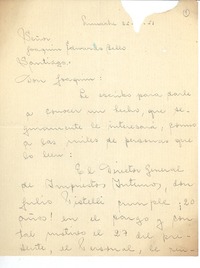 Señor
Joaquín Edwards Bello
Santiago.
Don Joaquín:
Le escribo para darle
a conocer un hecho, que se-
guramente le interesará, como
a los miles de personas que
lo leen:
El Director General
de Impuestos Internos, don
Julio Pistelli cumple ¡20
años! en el cargo y con
tal motivo el 27 del pre-
sente, el Personal, le